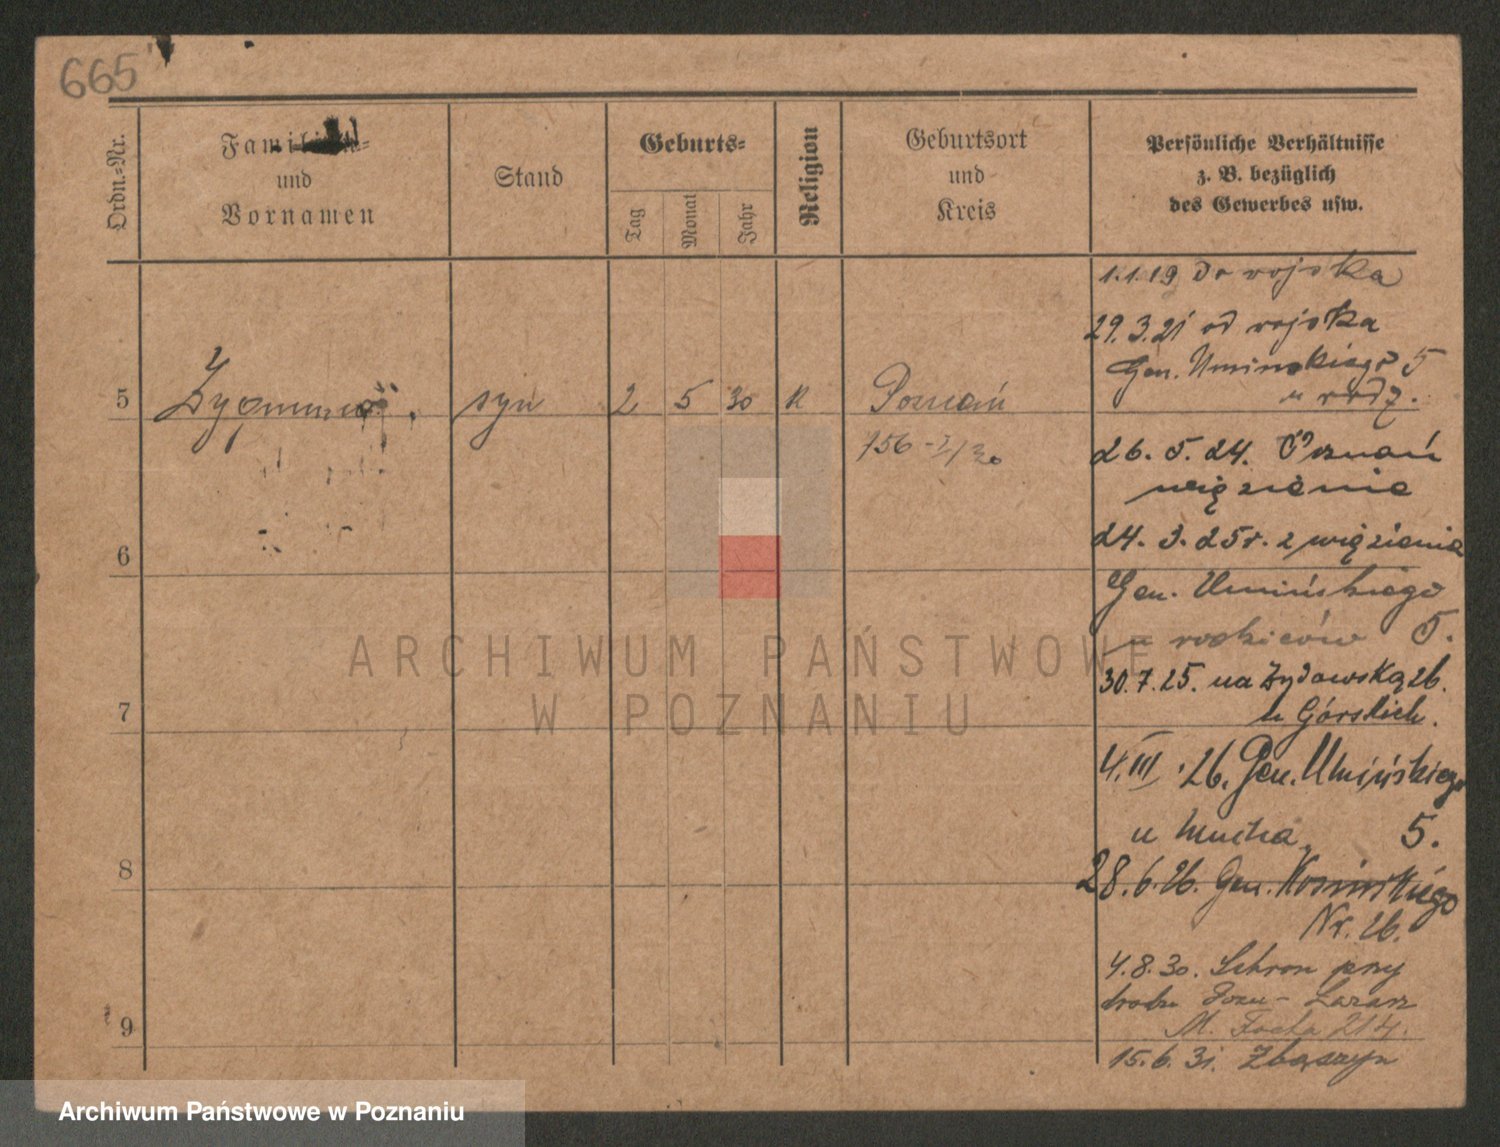 665
Ordn.-Nr.
Familien-
und
Vornamen
Stand
Geburts-
Tag
Monat
Jahr
Religion
Geburtsort
und
Kreis
Persönliche Verhältnisse
z. B. bezüglich
des Gewerbes usw.
1.1.19 Do wojska
29.3.21 od wojska
Gen. Umińskiego 5
u rodz.
5
Zygmunt.
syn
2
5
30
K
Poznań
756 -
26. 5. 24. Poznań
więzienie
6
24. 3. 25r. z więzienia
Gen. Umińskiego
u rodziców 5.
30.7.25. na Żydowską 26.
u Górskich.
7
4.III.26. Gen. Umińskiego
u 5.
8
28.6.26. Gen. Kosińskiego
Nr. 26.
4.8.30. Schron przy
Pozn-Łazarz
M. Focha 214.
9
15.6.31. Zbąszyn
ARCHIWUM PAŃSTWOWE
W POZNANIU
Archiwum Państwowe w Poznaniu